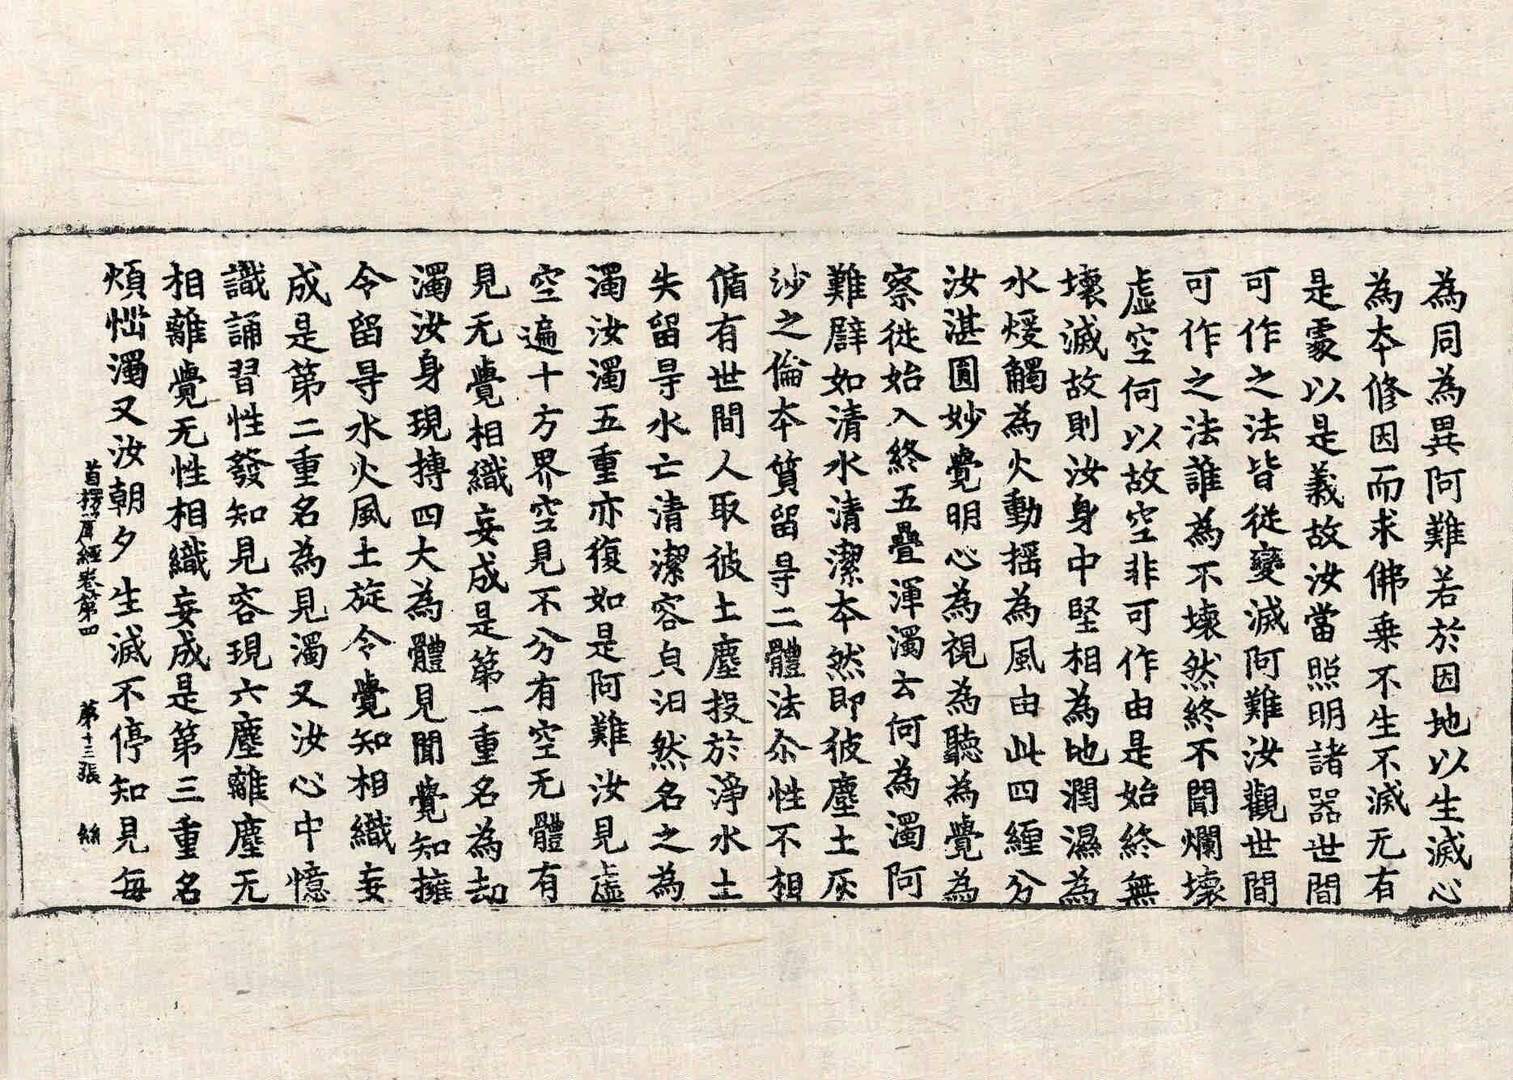 為同為異阿難若於因地以生滅心
為本修因而求佛乘不生不滅无有
是處以是義故汝當照明諸器世間
可作之法皆從變滅阿難汝觀世間
可作之法誰為不壞然終不聞爛壞
虛空何以故空非可作由是始終無
壞滅故則汝身中堅相為地潤濕為
水煖觸為火動搖為風由此四纏分
汝湛圓妙覺明心為視為聽為覺為
察從始入終五疊渾濁云何為濁阿
難辟如清水清潔本然即彼塵土灰
沙之倫本質留㝵二體法尒性不相
循有世間人取彼土塵投於淨水土
失留㝵水亡清潔容皃汩然名之為
濁汝濁五重亦復如是阿難汝見虛
空遍十方界空見不分有空无體有
見无覺相織妄成是第一重名為劫
濁汝身現搏四大為體見聞覺知擁
令留㝵水火風土旋令覺知相織妄
成是第二重名為見濁又汝心中憶
識誦習性發知見容現六塵離塵无
相離覺无性相織妄成是第三重名
煩惱濁又汝朝夕生滅不停知見每
首楞嚴經卷第四 第十三張 絲